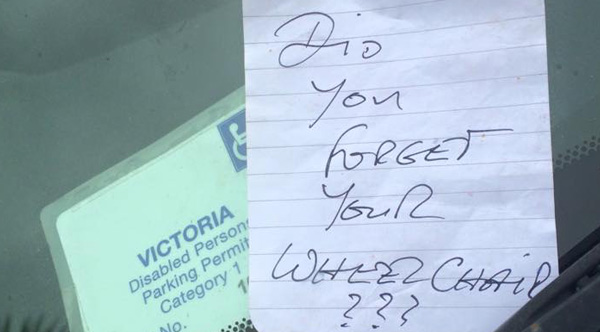 DID
YOU
FORGET
YOUR
WHEELCHAIR
???
VICTORIA
Disabled Person
Parking Permit
Category 1
No.